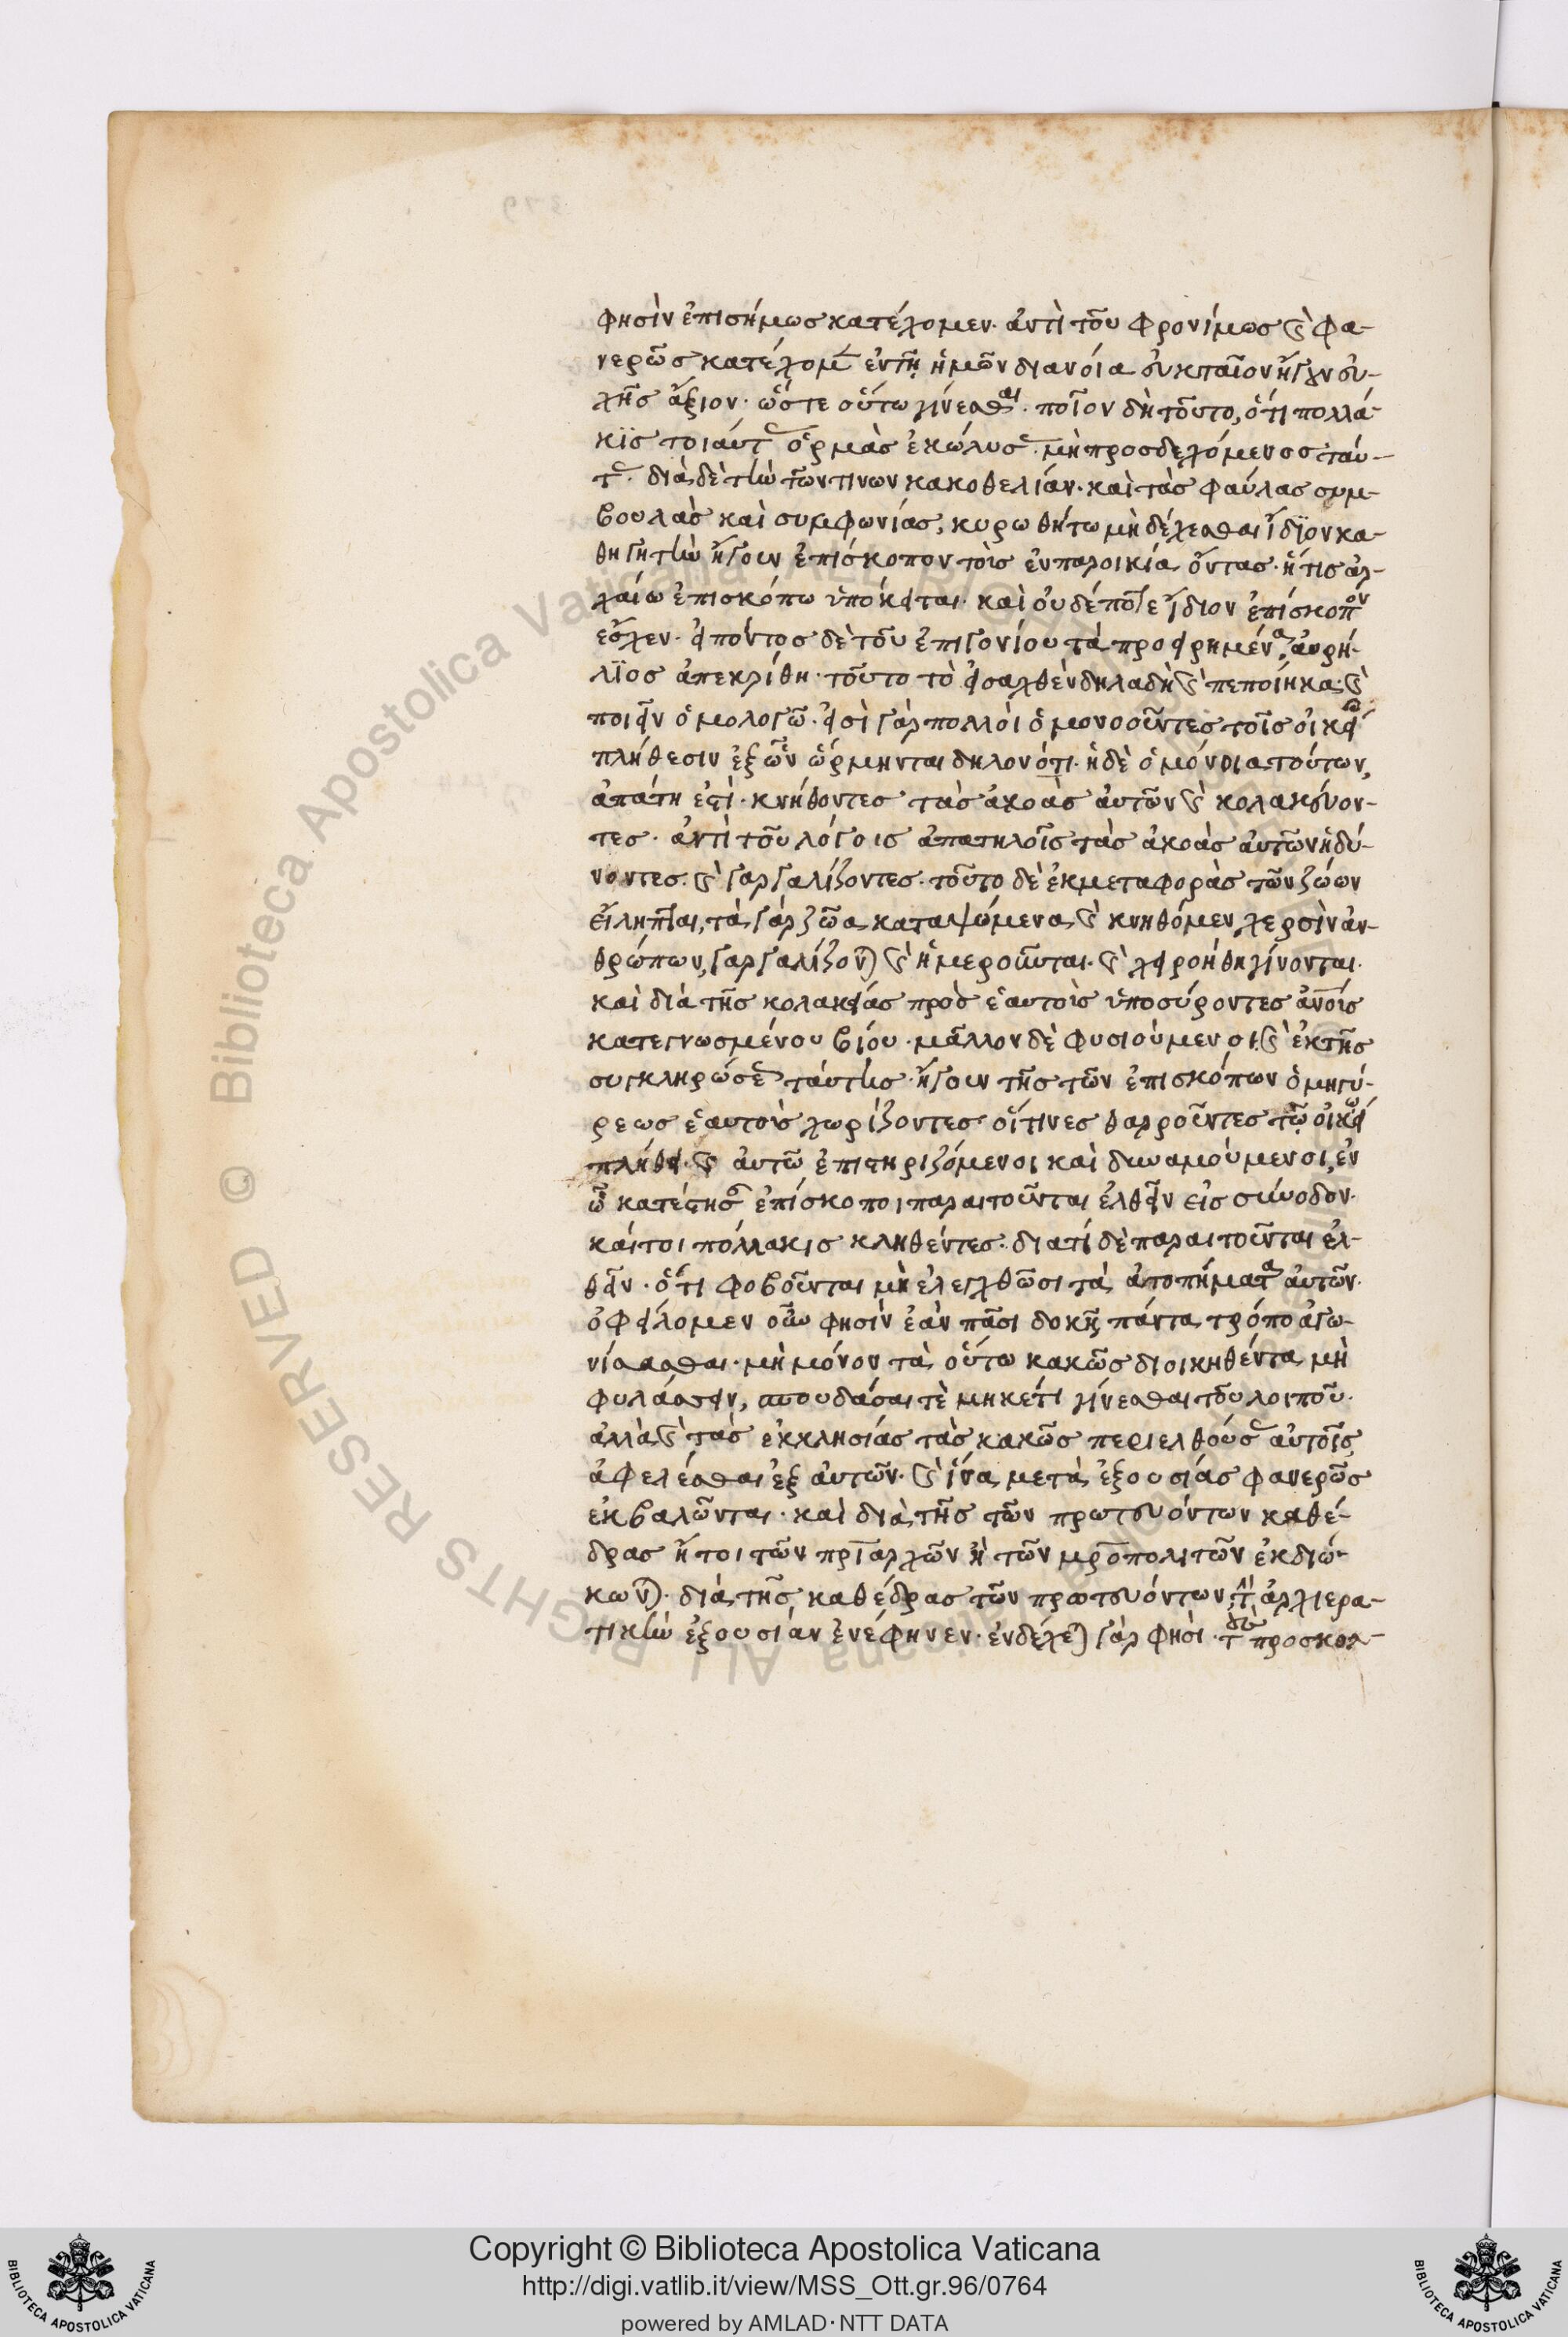 φησὶν ἐπισήμως κατέχομεν· ἀντὶ τοῦ φρονίμως καὶ φα-
νερῶς κατέχομεν ἐν τῇ ἡμῶν διανοία οὐκ παῖον ἤγουν εὐ-
χῆς ἄξιον· ὥστε οὕτω γίνεσθαι· ποῖον δὴ τοῦτο, ὅτι πολλά-
κϊς τοιαύτας ὁρμὰς ἐκώλυσε μὴ προσδεχόμενος ταύ-
τας· διὰ δὲ τὴν τῶν τινων κακοθελίαν· καὶ τὰς φαύλας συμ-
βουλὰς καὶ συμφωνίας, κυρωθήτω μὴ δέχεσθαι ἴδϊον κα-
θηγητὴν ἤγουν ἐπίσκοπον τοὺς ἐν παροικία ὄντας· ἥτις ἀρ-
χαίω ἐπισκόπω ὑπόκειται· καὶ οὐδέποτε ἴδιον ἐπίσκοπον
ἔσχεν· εἰπόντος δὲ τοῦ ἐπιγονίου τὰ προειρημένα, αὐρή-
λϊος ἀπεκρίθη· τοῦτο τὸ εἰσαχθὲν δηλαδὴ καὶ πεποίηκα· καὶ
ποιεῖν ὁμολογῶ· εἰσὶ γὰρ πολλοὶ ὁμονοοῦντες τοῖς οἰκείοις
πλήθεσιν ἐξ ὧν ὥρμηνται δηλονότι· ἡ δὲ ὁμόνοια τούτων,
ἀπάτη ἐστὶ· κνήθοντες τὰς ἀκοὰς αὐτῶν καὶ κολακεύον-
τες· ἀντὶ τοῦ λόγοις ἀπατηλοῖς τὰς ἀκοὰς αὐτῶν ἡδύ-
νοντες· καὶ γαργαλίζοντες· τοῦτο δὲ ἐκ μεταφορὰς τῶν ζώων
εἴληπται, τὰ γὰρ ζῶα καταψώμενα καὶ κνηθόμενα χερσὶν ἀν-
θρώπων, γαργαλίζονται καὶ ἡμεροῦνται· καὶ χειροήθη γίνονται·
καὶ διὰ τῆς κολακείας πρὸς ἑαυτοὺς ὑποσύροντες ἀνοὺς
κατεγνωσμένου βίου· μᾶλλον δὲ φυσιούμενοι, καὶ ἐκ τῆς
συγκληρώσεως ταύτης· ἤγουν τῆς τῶν ἐπισκόπων ὁμηγύ-
ρεως ἑαυτοὺς χωρίζοντες οἵτινες θαρροῦντες τῷ οἰκείω
πλήθει· καὶ αὐτῶ ἐπιστηριζόμενοι καὶ δυναμούμενοι, ἐν
ὧ κατέστησαν ἐπίσκοποι παραιτοῦνται ἐλθεῖν εἰς σύνοδον·
καίτοι πολλακις κληθέντες· διατί δὲ παραιτοῦνται ἐλ-
θεῖν· ὅτι φοβοῦνται μὴ ἐλεγχθῶσι τὰ ἀτοπήματα αὐτῶν·
ὀφείλομεν οὖν φησὶν ἐὰν πᾶσι δοκῇ, πάντα τρόπο ἀγω-
νίσασθαι· μὴ μόνον τὰ οὕτω κακῶς διοικηθέντα μὴ
φυλάσσειν, σπουδάσαι τὲ μηκέτι γίνεσθαι τοῦ λοιποῦ·
ἀλλὰ καὶ τὰς ἐκκλησίας τὰς κακῶς περιελθούσας αὐτοῖς
ἀφελέσθαι ἐξ αὐτῶν· καὶ ἵνα μετὰ ἐξουσίας φανερῶς
ἐκβαλῶνται· καὶ διὰ τῆς τῶν πρωτευόντων καθέ-
δρας ἤτοι τῶν πριαρχῶν ἢ τῶν μροπολιτῶν ἐκδιώ-
κωνται· διὰ τῆς καθέδρας τῶν πρωτευόντων, τὴν ἀρχιερα-
τικὴν ἐξουσίαν ἐνέφηνεν· ἐνδέχεται γάρ φησι· τοὺς προσκολ-